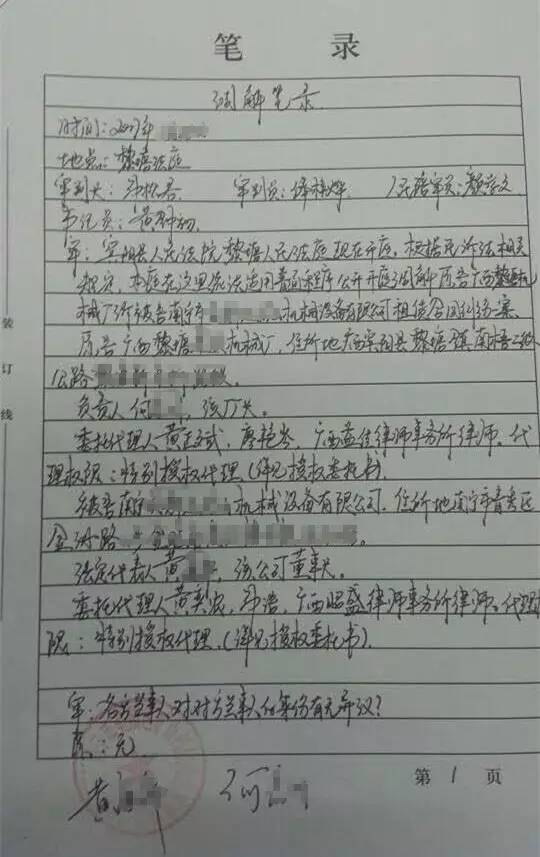 笔 录
调解笔录
时间:2007年
地点:黎塘法庭
审判长: 审判员: 人民陪审员:
书记员:
审:宾阳县人民法院黎塘人民法庭现在开庭。根据民诉法相关
规定,本庭在这里依法适用普通程序公开开庭调解原告广西黎塘
械厂诉被告南宁市 机械设备有限公司租赁合同纠纷案。
原告广西黎塘 机械厂,住所地广西宾阳县黎塘镇南梧二级
公路
负责人何 ,该厂厂长。
委托代理人黄正武,廖艳岑,广西益佳律师事务所律师。代
理权限:特别授权代理(详见授权委托书)。
被告南宁 机械设备有限公司,住所地南宁市青秀区
金洲路
法定代表人黄 ,该公司董事长。
委托代理人黄 ,广西 盛律师事务所律师。代理权
限:特别授权代理。(详见授权委托书)。
审:各方当事人对对方当事人的身份有无异议?
原:无
黄 何
第 1 页
装
订
线